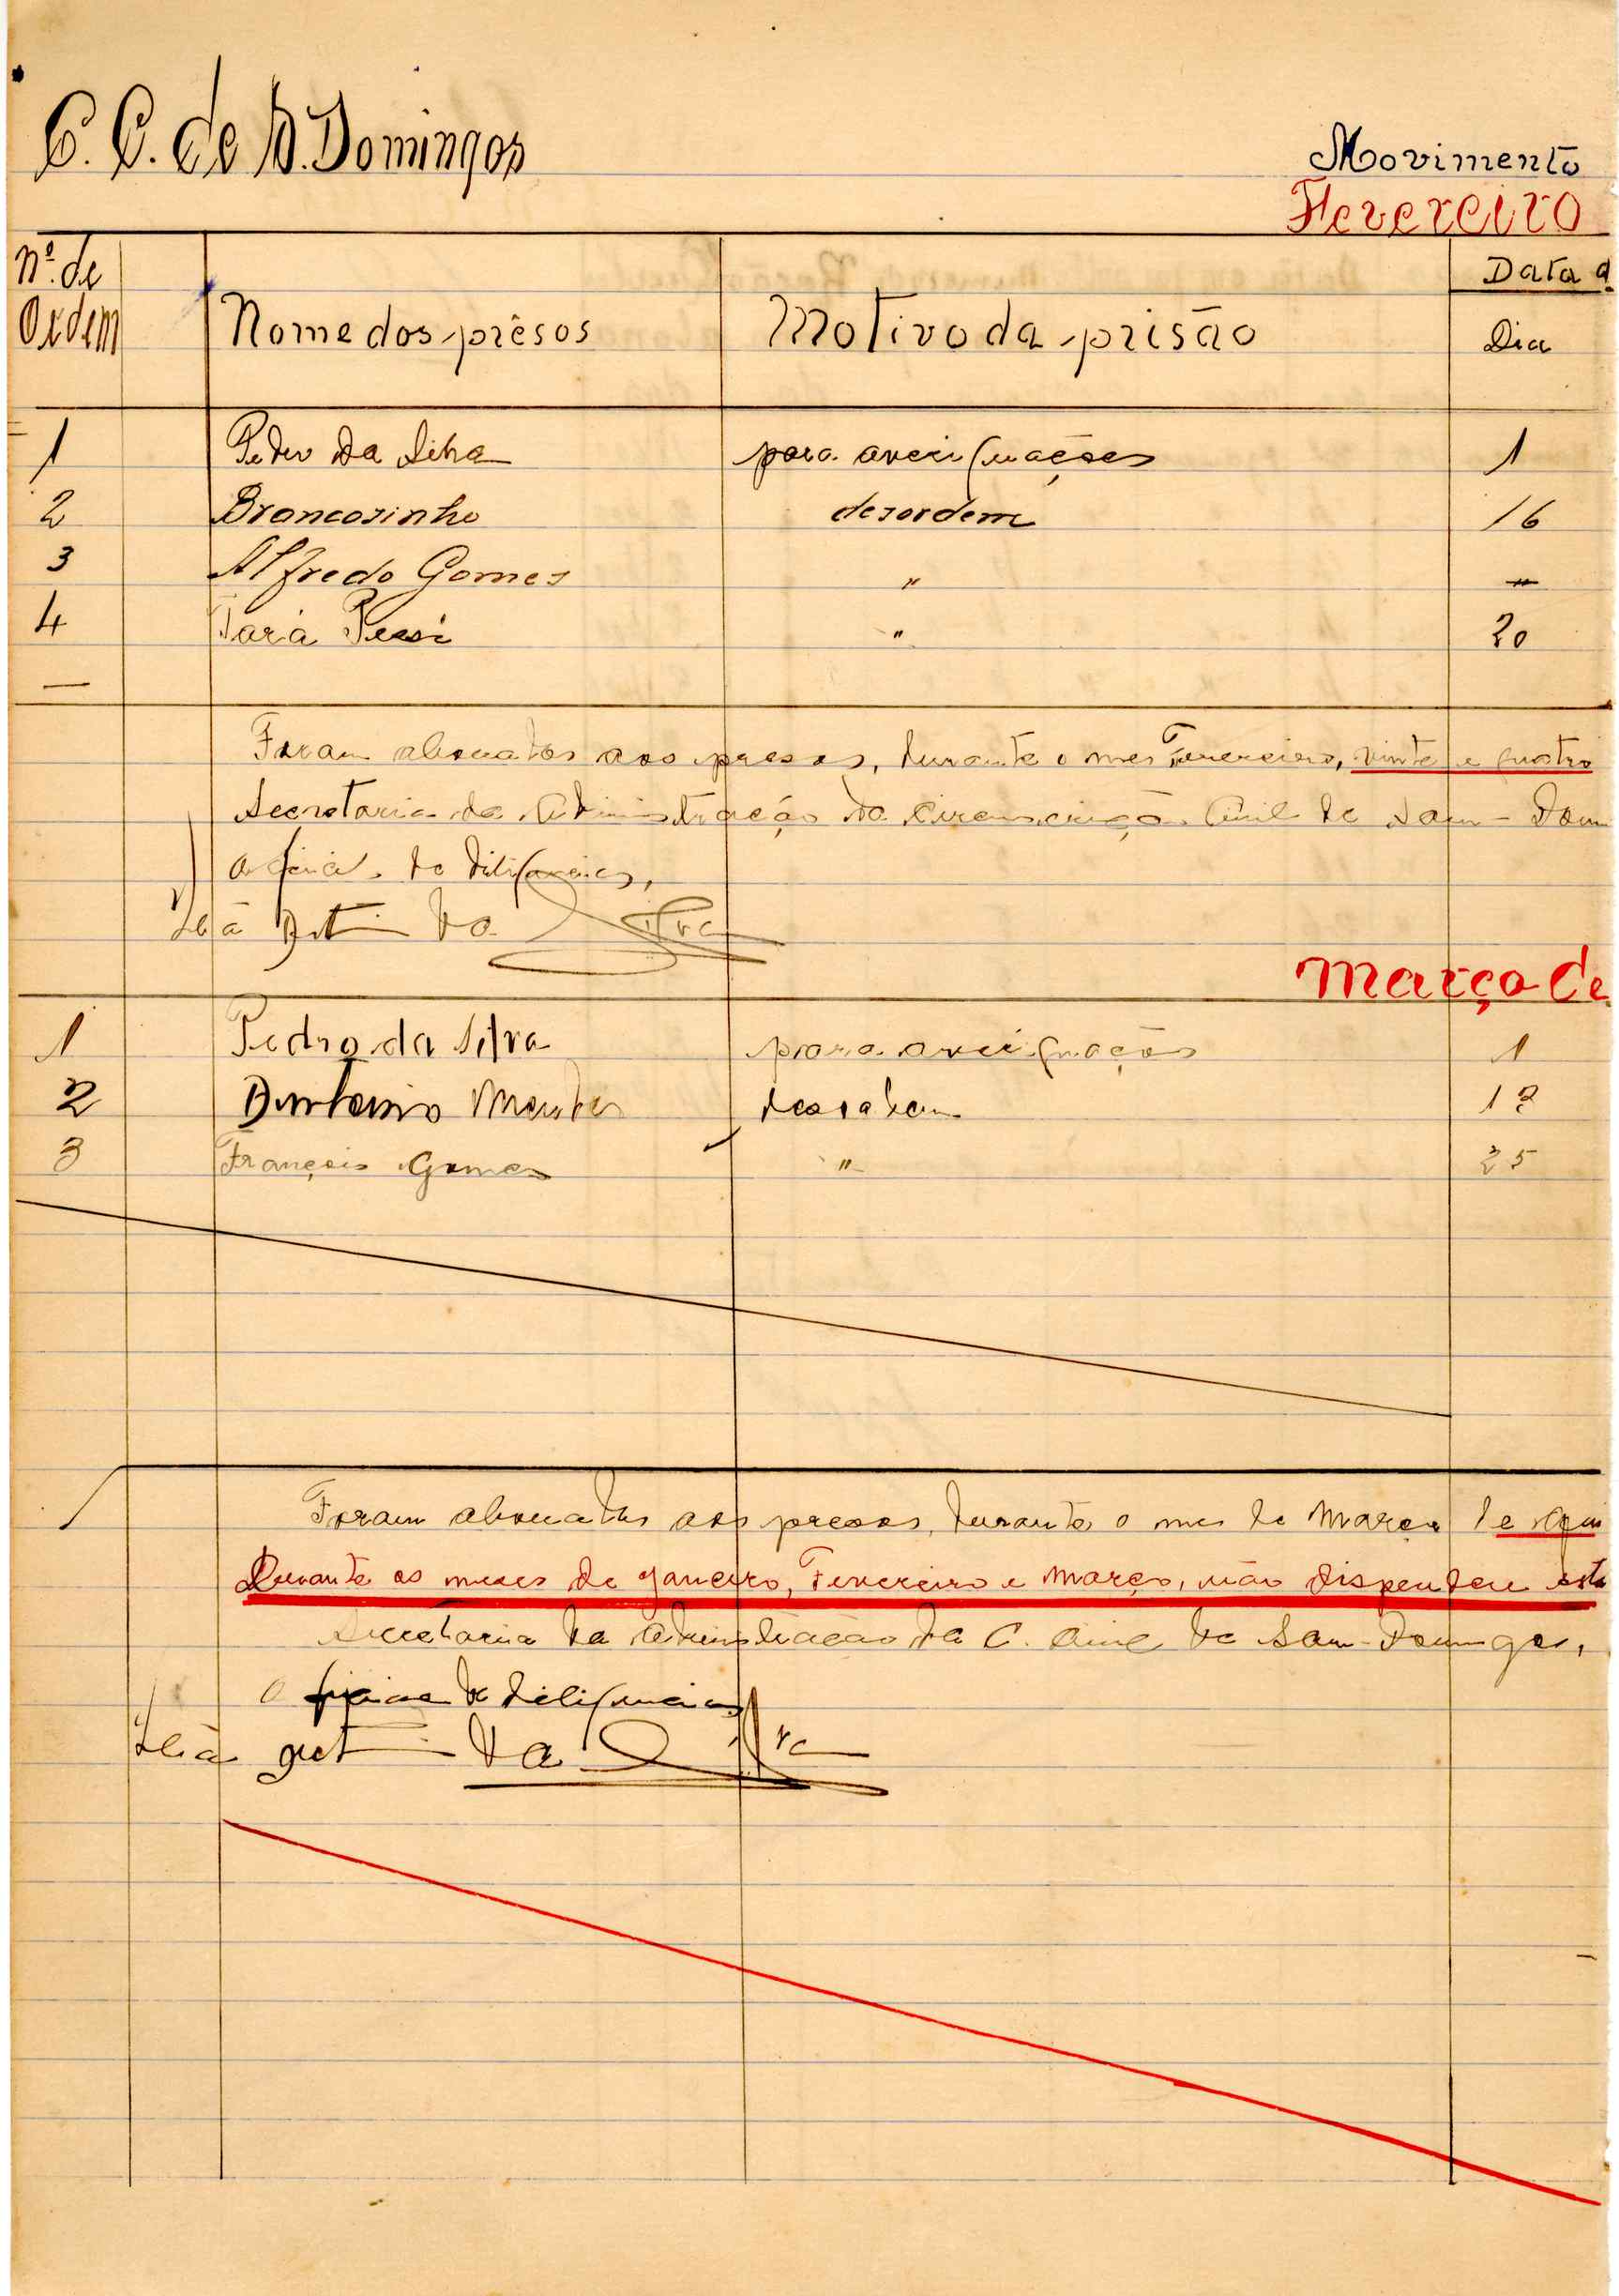 C. C. de S. Domingos
Movimento
Fevereiro
Nº. de Ordem
Nome dos prêsos
Motivo da prisão
Data d
Dia
1 Pedro da Silva para averiguações 1
2 Brancosinho desordem 16
3 Alfredo Gomes " "
4 " 20
Foram abonados aos presos, durante o mes Fevereiro, vinte e quatro
Secretaria da Administração da Circunscrição Civil de Sam-Dom
oficial de diligencias,
da Silva
Março de
1 Pedro da Silva para averiguações 1
2 Mendes desordem 12
3 François Gomes " 25
Foram abonados aos presos, durante o mes de Março de
Durante os meses de Janeiro, Fevereiro e Março, não dispendeu esta
Secretaria da Administração da C. Civil de Sam-Domingos,
O oficial de diligencias
da Silva